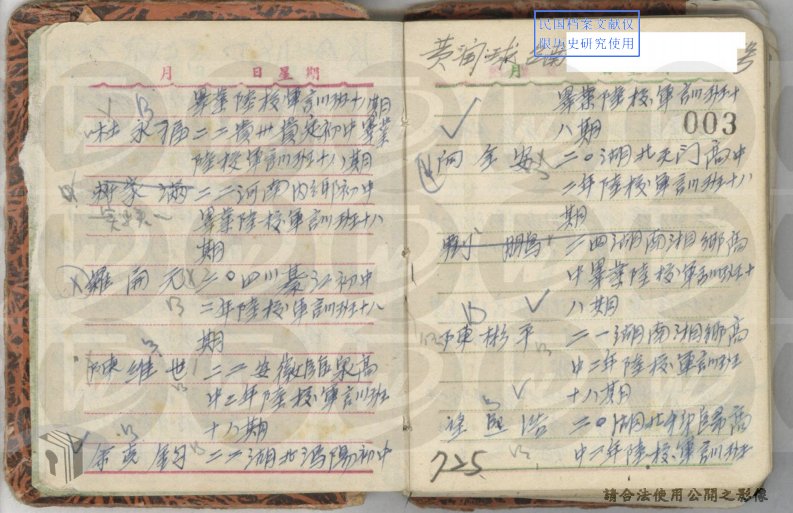 月 日 星 期
畢業陸校軍訓班十八期
杜永福 二二貴州貴定初中畢業
陸校軍訓班十八期
二二河南內鄉初中
畢業陸校軍訓班十八
期
羅南元 二〇四川綦江初中
二年陸校軍訓班十八
期
陳維世 二二安徽臨泉高
中二年陸校軍訓班
十八期
余 鈞 二二湖北沔陽初中
民国档案文献仅
限历史研究使用
黃 球
月
畢業陸校軍訓班十
八期
003
向金安 二〇湖北天门高中
二年陸校軍訓班十八
期
劉鵬 二四湖南湘鄉高
中畢業陸校軍訓班十
八期
陳彬平 二一湖南湘鄉高
中二年陸校軍訓班
十八期
浩 二〇湖北秭歸高
中二年陸校軍訓班
725
請合法使用公開之影像